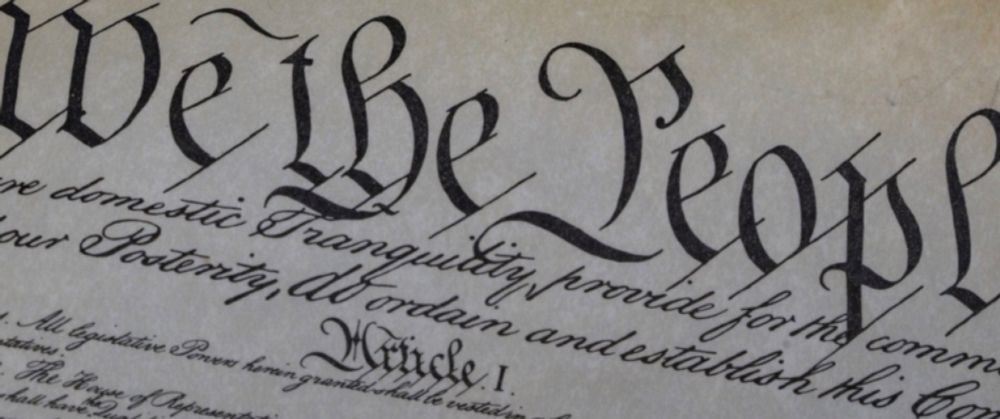 We the Peopl
re domestic Tranquility, provide for the comm
our Posterity, do ordain and establish this Con
Article. I.
. All legislative Powers herein granted shall be vested in a
tatives.
. The House of Representati
shall have the